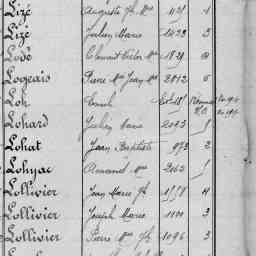 Lizé Auguste Jh Mie 1
Lizé Julien Marie 1423 3
Lodé Clément Victor Mie 1829 4
Logeais Pierre Mie Jean Mie 2012 6
Loh
Lohard Julien Marie 2095 1
Lohat Jean Baptiste 893 2
Lohyac Armand Mie 2062 1
Lollivier Jean Marie Jh 1558 4
Lollivier Joseph Marie 1100 3
Lollivier Pierre Mie Jh 1096 3